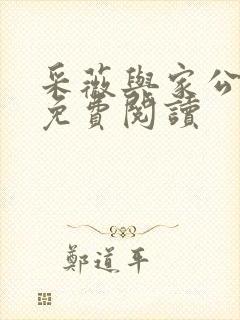 采薇與家公
免費閱讀
鄭道平